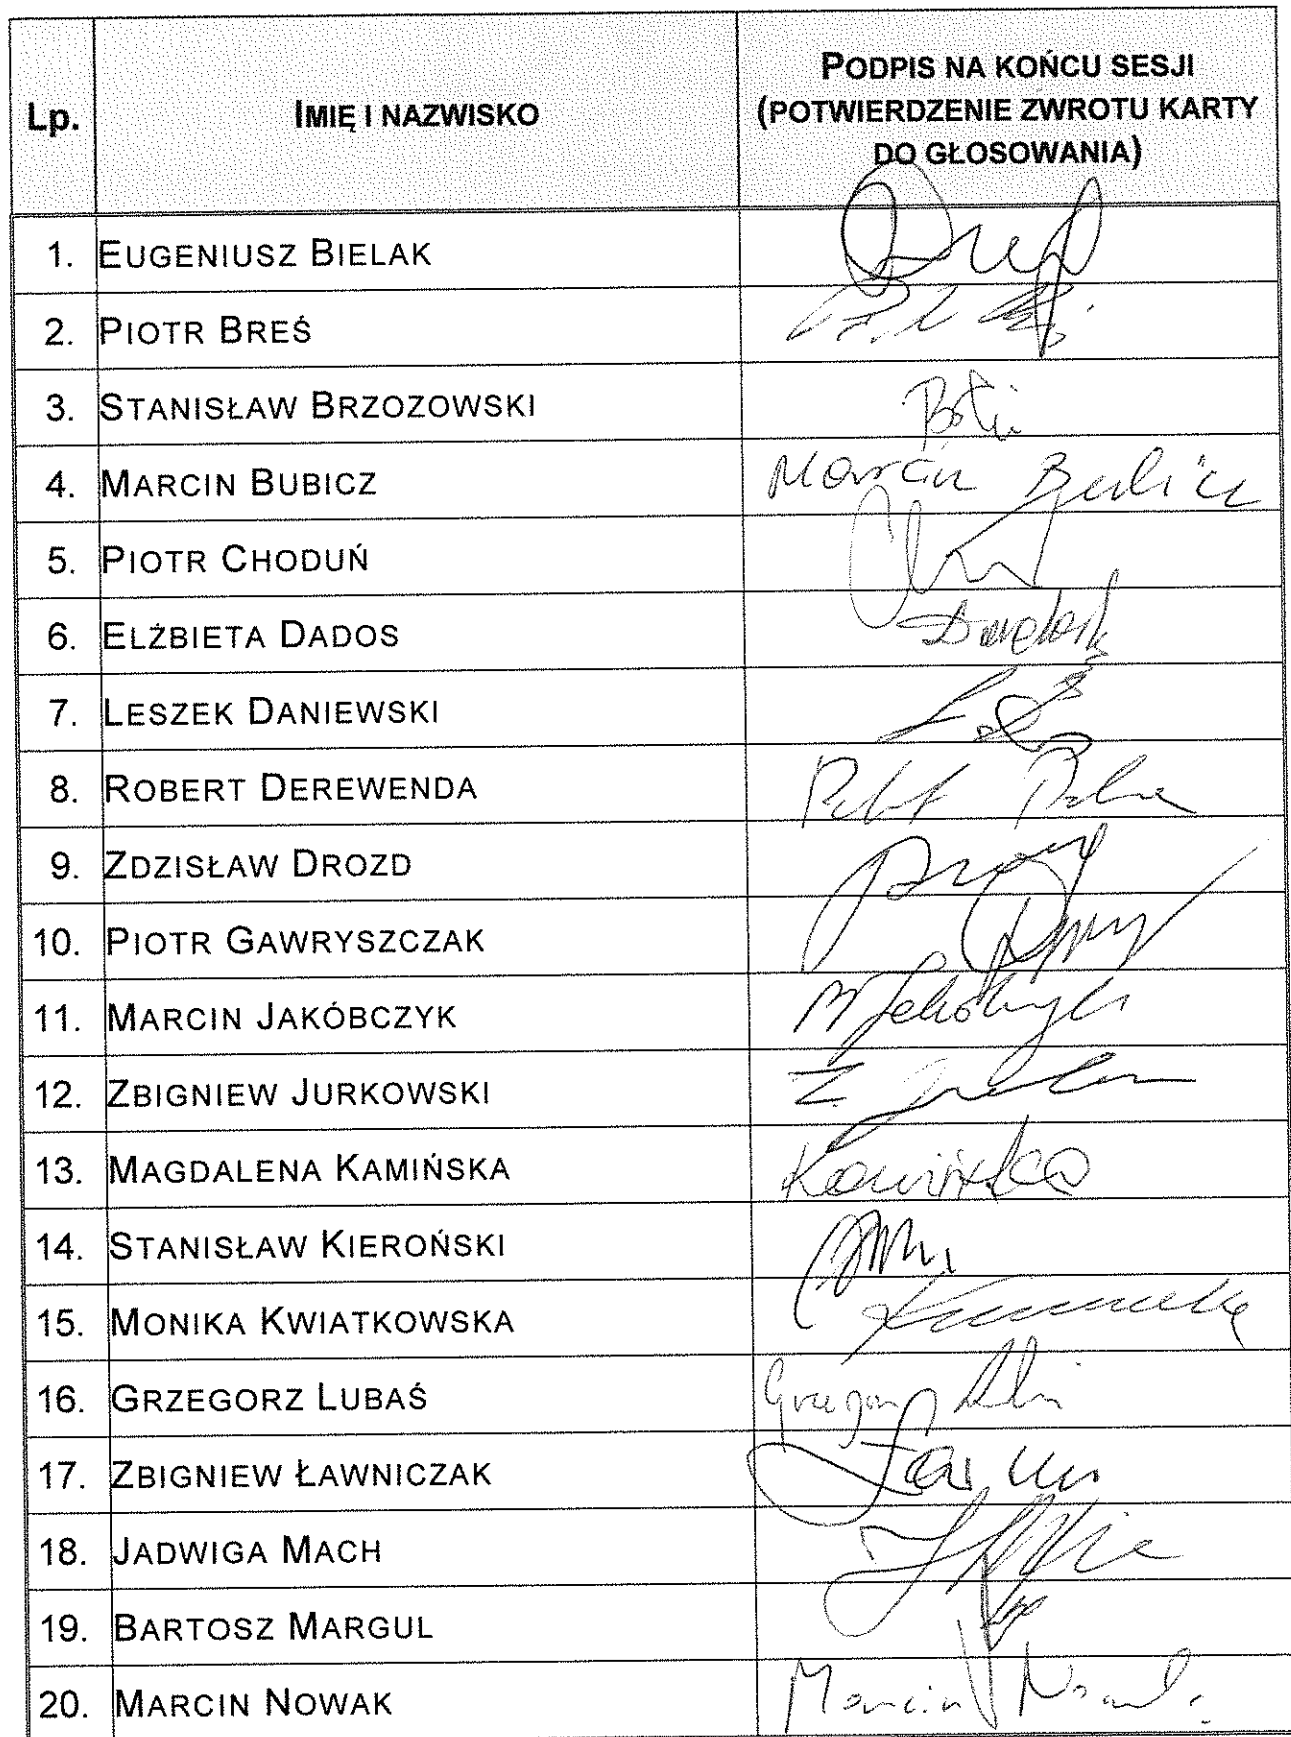 Lp.
IMIĘ I NAZWISKO
PODPIS NA KOŃCU SESJI
(POTWIERDZENIE ZWROTU KARTY
DO GŁOSOWANIA)
1. EUGENIUSZ BIELAK
2. PIOTR BREŚ
3. STANISŁAW BRZOZOWSKI
4. MARCIN BUBICZ Marcin Bubicz
5. PIOTR CHODUŃ
6. ELŻBIETA DADOS
7. LESZEK DANIEWSKI
8. ROBERT DEREWENDA
9. ZDZISŁAW DROZD
10. PIOTR GAWRYSZCZAK
11. MARCIN JAKÓBCZYK
12. ZBIGNIEW JURKOWSKI Z.
13. MAGDALENA KAMIŃSKA Kamińska
14. STANISŁAW KIEROŃSKI
15. MONIKA KWIATKOWSKA
16. GRZEGORZ LUBAŚ
17. ZBIGNIEW ŁAWNICZAK
18. JADWIGA MACH
19. BARTOSZ MARGUL
20. MARCIN NOWAK Marcin Nowak